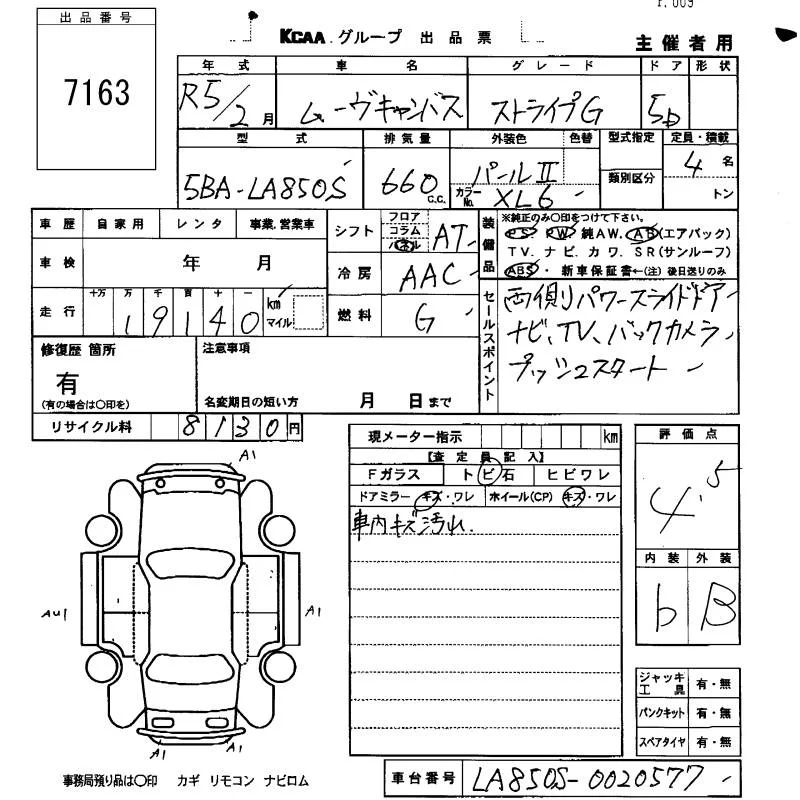 出品番号
7163
r.009
KCAA グループ 出品票
主催者用
年式 車名 グレード ドア 形状
R5/2月 ムーヴキャンバス ストライプG 5D
型式 排気量 外装色 色替 型式指定 定員・積載
5BA-LA850S 660 C.C. パールⅡ カラーNo. XL6 類別区分 4名 トン
車歴 自家用 レンタ 事業.営業車
シフト フロア コラム パネル AT
装備品 ※純正のみ〇印をつけて下さい。
PS PW 純AW. AB(エアバック)
TV. ナビ. カワ. SR(サンルーフ)
ABS・新車保証書←(注)後日送りのみ
車検 年 月
冷房 AAC
走行 十万 万 千 百 十 一
19140 km マイル
燃料 G
セールスポイント
両側パワースライドドア
ナビ、TV、バックカメラ
プッシュスタート
修復歴 箇所
有
(有の場合は〇印を)
注意事項
名変期日の短い方 月 日まで
リサイクル料 8130円
現メーター指示 km
【査定員記入】
Fガラス トビ石 ヒビワレ
ドアミラー キズ・ワレ ホイール(CP) キズ・ワレ
車内キズ汚れ.
評価点
4.5
内装 外装
b B
A1
AU1
A1
A1
A1
ジャッキ工具 有・無
パンクキット 有・無
スペアタイヤ 有・無
事務局預り品は〇印 カギ リモコン ナビロム
車台番号 LA850S-0020577